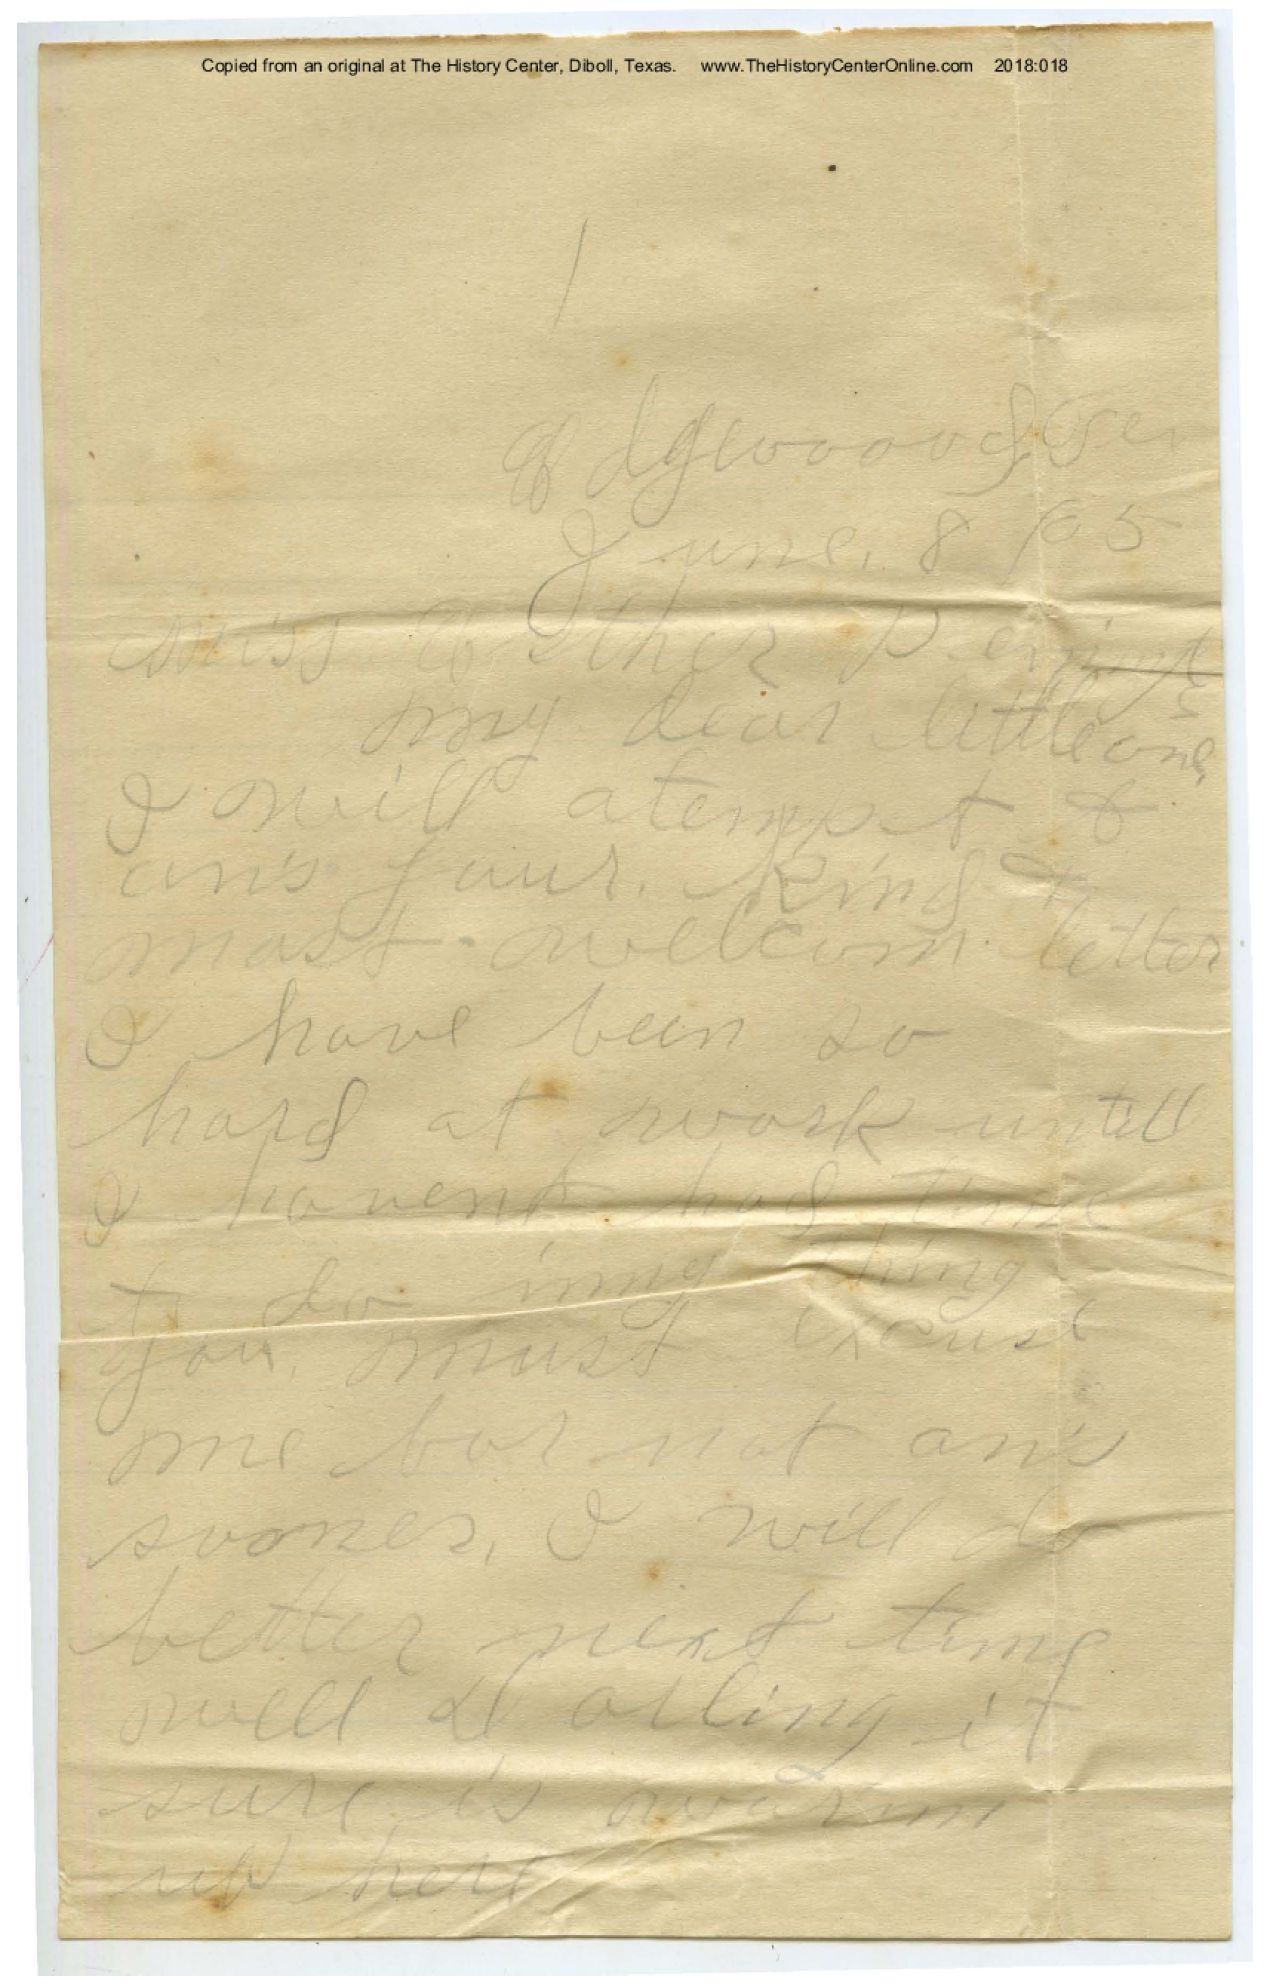 Copied from an original at The History Center, Diboll, Texas. www.TheHistoryCenterOnline.com 2018:018
1
Edgewoood
June. 8 / 05
miss Esther
my dear little one,
I will atempt to
ans your. kind &
most welcom letter
I have been so
hard at work untill
I havent had time
to do inny thing
you must excuse
me for not ans
sooner, I will do
better next time
well Darling it
sure is warm
up here